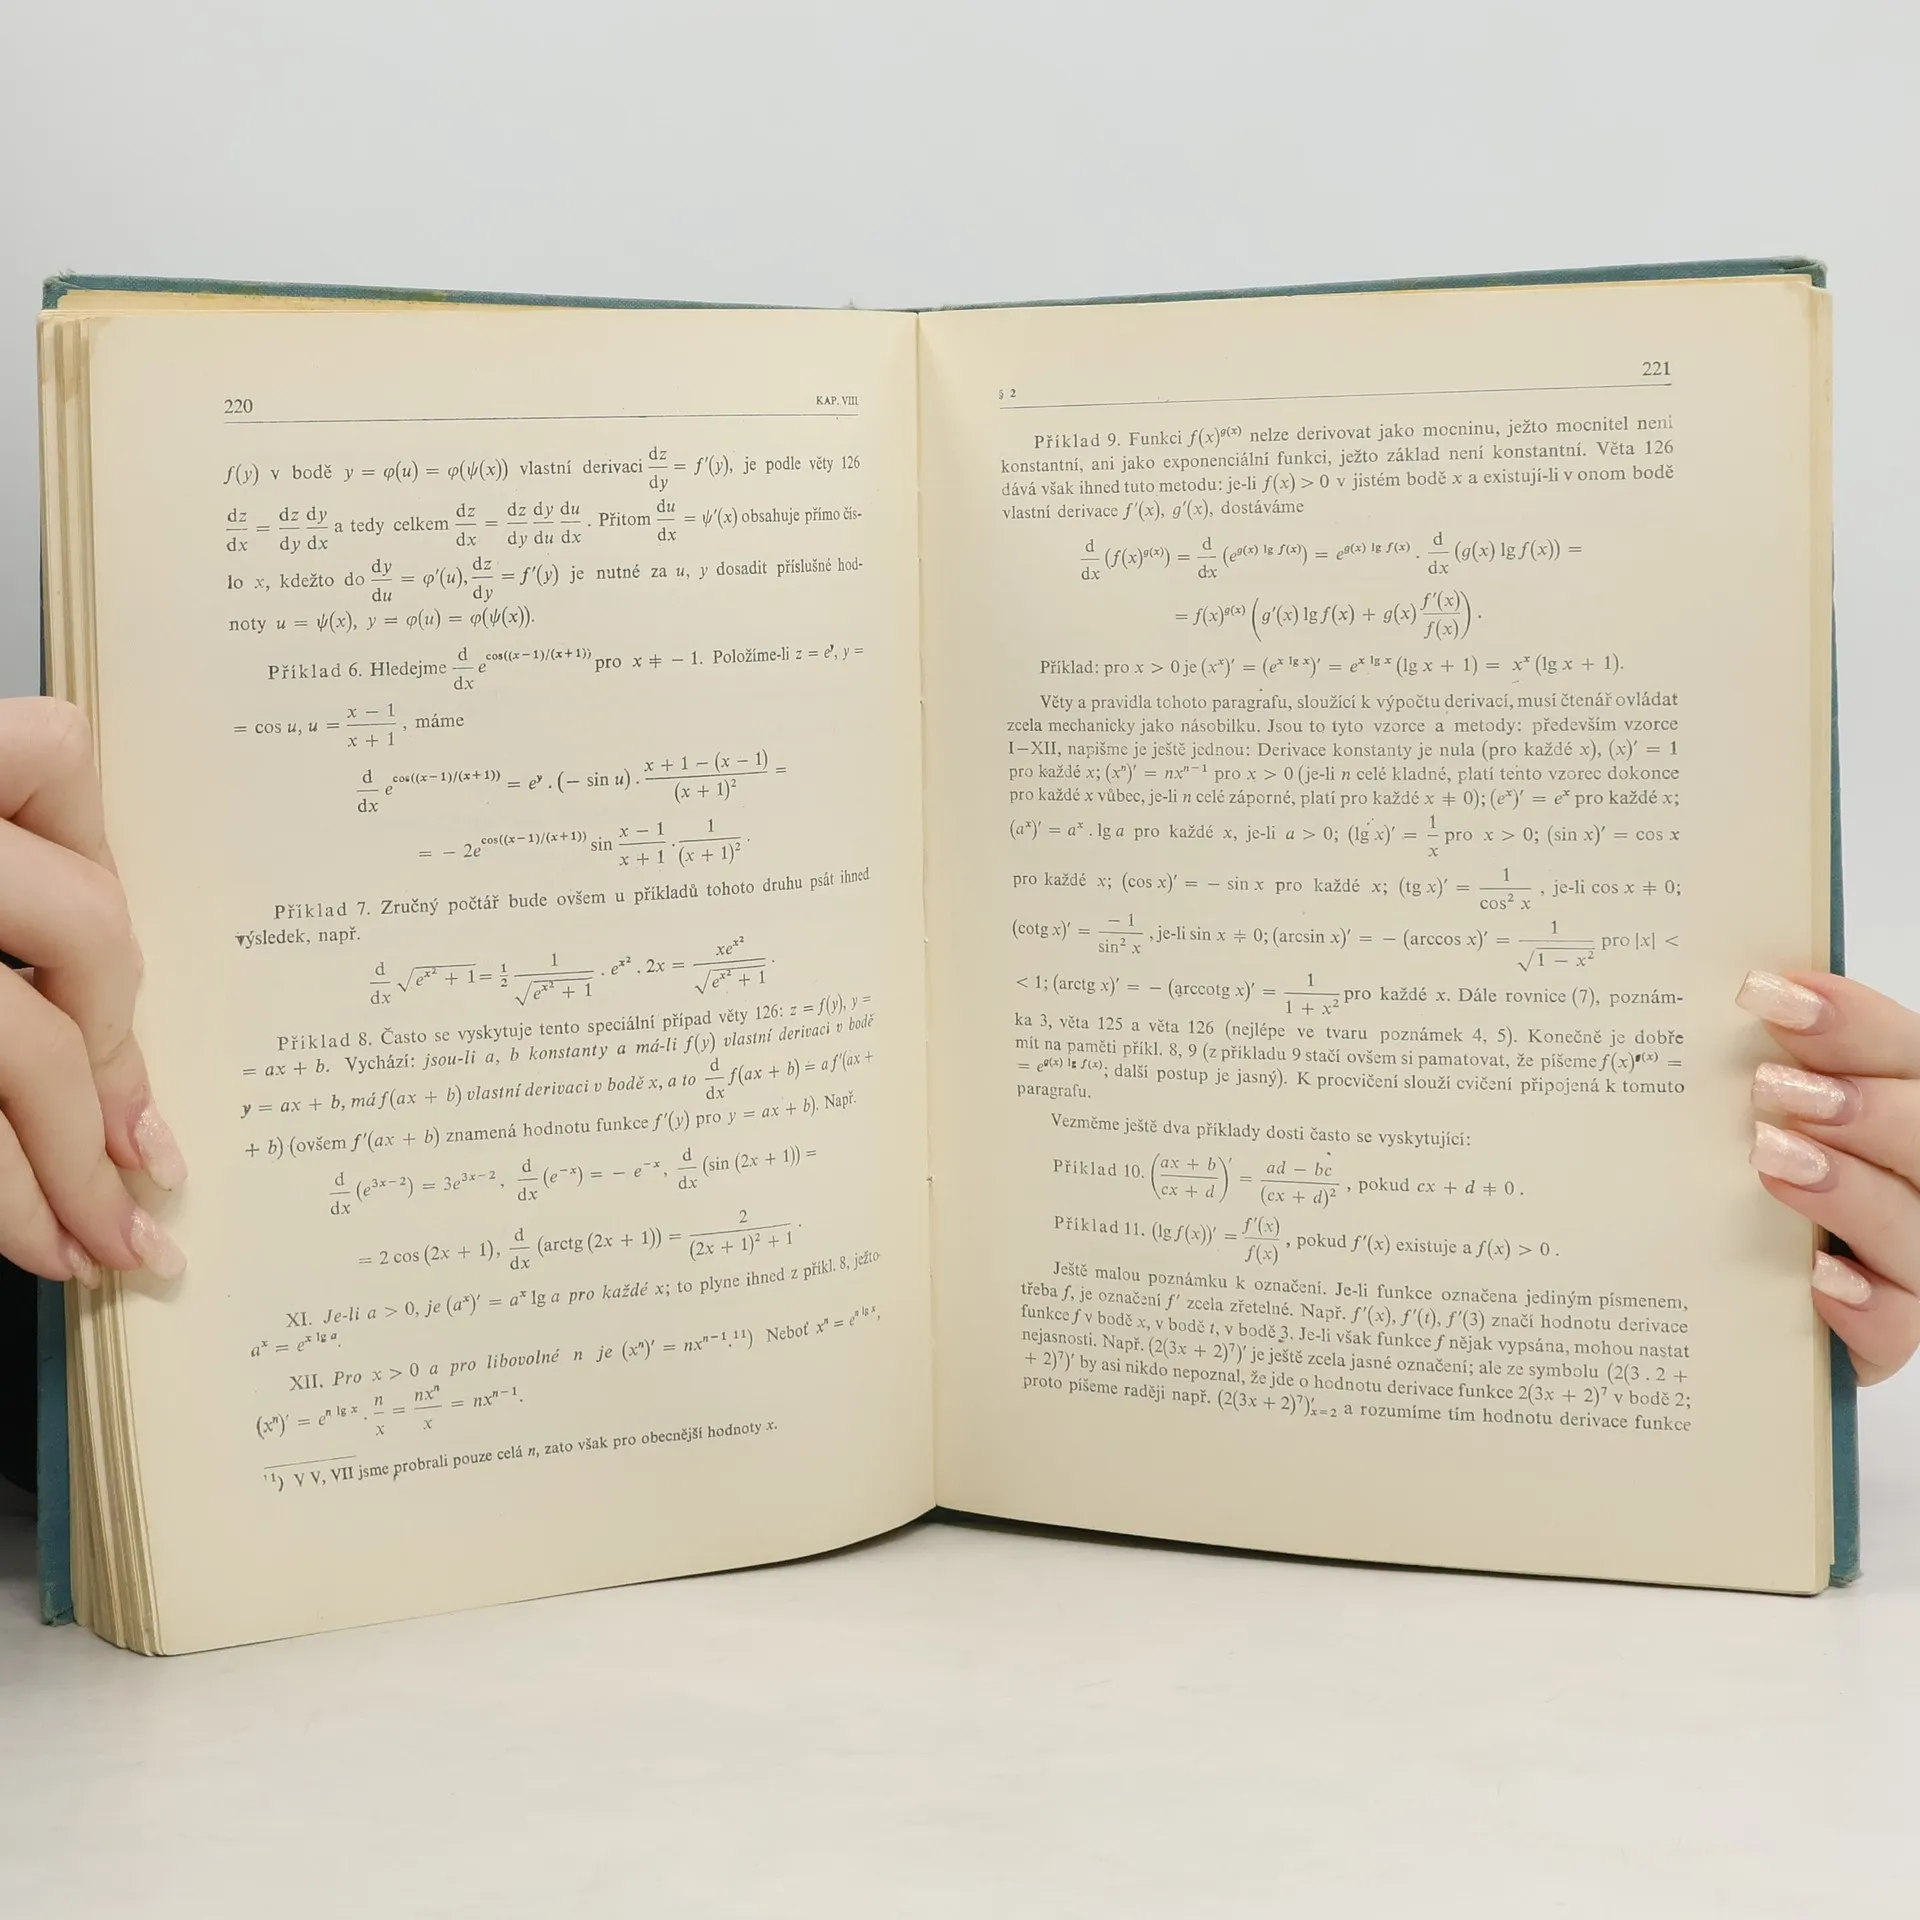 220 KAP. VIII
f(y) v bodě y = φ(u) = φ(ψ(x)) vlastní derivaci dz/dy = f′(y), je podle věty 126
dz/dx = dz/dy dy/dx a tedy celkem dz/dx = dz/dy dy/du du/dx . Přitom du/dx = ψ′(x) obsahuje přímo čís-
lo x, kdežto do dy/du = φ′(u), dz/dy = f′(y) je nutné za u, y dosadit příslušné hod-
noty u = ψ(x), y = φ(u) = φ(ψ(x)).
Příklad 6. Hledejme d/dx e^cos((x−1)/(x+1)) pro x ≠ − 1. Položíme-li z = e^y, y =
= cos u, u = (x − 1)/(x + 1) , máme
d/dx e^cos((x−1)/(x+1)) = e^y . (− sin u) . (x + 1 − (x − 1))/(x + 1)² =
= − 2e^cos((x−1)/(x+1)) sin (x − 1)/(x + 1) . 1/(x + 1)² .
Příklad 7. Zručný počtář bude ovšem u příkladů tohoto druhu psát ihned
výsledek, např.
d/dx √(e^x² + 1) = ½ 1/√(e^x² + 1) . e^x² . 2x = xe^x²/√(e^x² + 1) .
Příklad 8. Často se vyskytuje tento speciální případ věty 126: z = f(y), y =
= ax + b. Vychází: jsou-li a, b konstanty a má-li f(y) vlastní derivaci v bodě
y = ax + b, má f(ax + b) vlastní derivaci v bodě x, a to d/dx f(ax + b) = a f′(ax +
+ b) (ovšem f′(ax + b) znamená hodnotu funkce f′(y) pro y = ax + b). Např.
d/dx (e^(3x−2)) = 3e^(3x−2), d/dx (e^−x) = − e^−x, d/dx (sin (2x + 1)) =
= 2 cos (2x + 1), d/dx (arctg (2x + 1)) = 2/((2x + 1)² + 1) .
XI. Je-li a > 0, je (a^x)′ = a^x lg a pro každé x; to plyne ihned z příkl. 8, ježto
a^x = e^(x lg a).
XII. Pro x > 0 a pro libovolné n je (x^n)′ = nx^(n−1).¹¹) Neboť x^n = e^(n lg x),
(x^n)′ = e^(n lg x) . n/x = nx^n/x = nx^(n−1).
¹¹) V V, VII jsme probrali pouze celá n, zato však pro obecnější hodnoty x.
§ 2 221
Příklad 9. Funkci f(x)^g(x) nelze derivovat jako mocninu, ježto mocnitel není
konstantní, ani jako exponenciální funkci, ježto základ není konstantní. Věta 126
dává však ihned tuto metodu: je-li f(x) > 0 v jistém bodě x a existují-li v onom bodě
vlastní derivace f′(x), g′(x), dostáváme
d/dx (f(x)^g(x)) = d/dx (e^(g(x) lg f(x))) = e^(g(x) lg f(x)) . d/dx (g(x) lg f(x)) =
= f(x)^g(x) (g′(x) lg f(x) + g(x) f′(x)/f(x)) .
Příklad: pro x > 0 je (x^x)′ = (e^(x lg x))′ = e^(x lg x) (lg x + 1) = x^x (lg x + 1).
Věty a pravidla tohoto paragrafu, sloužící k výpočtu derivací, musí čtenář ovládat
zcela mechanicky jako násobilku. Jsou to tyto vzorce a metody: především vzorce
I−XII, napišme je ještě jednou: Derivace konstanty je nula (pro každé x), (x)′ = 1
pro každé x; (x^n)′ = nx^(n−1) pro x > 0 (je-li n celé kladné, platí tento vzorec dokonce
pro každé x vůbec, je-li n celé záporné, platí pro každé x ≠ 0); (e^x)′ = e^x pro každé x;
(a^x)′ = a^x . lg a pro každé x, je-li a > 0; (lg x)′ = 1/x pro x > 0; (sin x)′ = cos x
pro každé x; (cos x)′ = − sin x pro každé x; (tg x)′ = 1/cos² x , je-li cos x ≠ 0;
(cotg x)′ = −1/sin² x , je-li sin x ≠ 0; (arcsin x)′ = − (arccos x)′ = 1/√(1 − x²) pro |x| <
< 1; (arctg x)′ = − (arccotg x)′ = 1/(1 + x²) pro každé x. Dále rovnice (7), poznám-
ka 3, věta 125 a věta 126 (nejlépe ve tvaru poznámek 4, 5). Konečně je dobře
mít na paměti příkl. 8, 9 (z příkladu 9 stačí ovšem si pamatovat, že píšeme f(x)^g(x) =
= e^(g(x) lg f(x)); další postup je jasný). K procvičení slouží cvičení připojená k tomuto
paragrafu.
Vezměme ještě dva příklady dosti často se vyskytující:
Příklad 10. ((ax + b)/(cx + d))′ = (ad − bc)/(cx + d)² , pokud cx + d ≠ 0 .
Příklad 11. (lg f(x))′ = f′(x)/f(x) , pokud f′(x) existuje a f(x) > 0 .
Ještě malou poznámku k označení. Je-li funkce označena jediným písmenem,
třeba f, je označení f′ zcela zřetelné. Např. f′(x), f′(t), f′(3) značí hodnotu derivace
funkce f v bodě x, v bodě t, v bodě 3. Je-li však funkce f nějak vypsána, mohou nastat
nejasnosti. Např. (2(3x + 2)⁷)′ je ještě zcela jasné označení; ale ze symbolu (2(3 . 2 +
+ 2)⁷)′ by asi nikdo nepoznal, že jde o hodnotu derivace funkce 2(3x + 2)⁷ v bodě 2;
proto píšeme raději např. (2(3x + 2)⁷)′ₓ₌₂ a rozumíme tím hodnotu derivace funkce